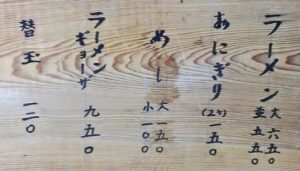 ラーメン 大 六五〇
並 五五〇
おにぎり(2ケ) 一五〇
めし 大 一五〇
小 一〇〇
ラーメン
ギョーザ 九五〇
替玉 一二〇